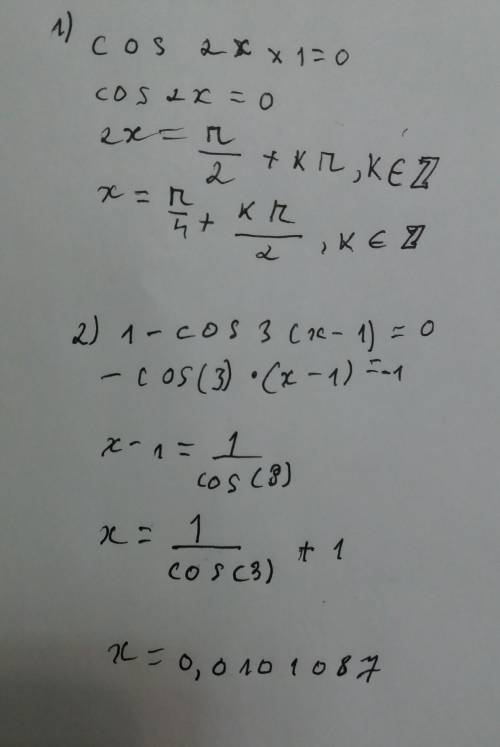 1)
cos 2x × 1 = 0
cos 2x = 0
2x = π/2 + kπ, k ∈ ℤ
x = π/4 + kπ/2, k ∈ ℤ
2) 1 - cos 3 (x - 1) = 0
- cos(3) · (x - 1) = -1
x - 1 = 1/cos(3)
x = 1/cos(3) + 1
x = 0,0101087